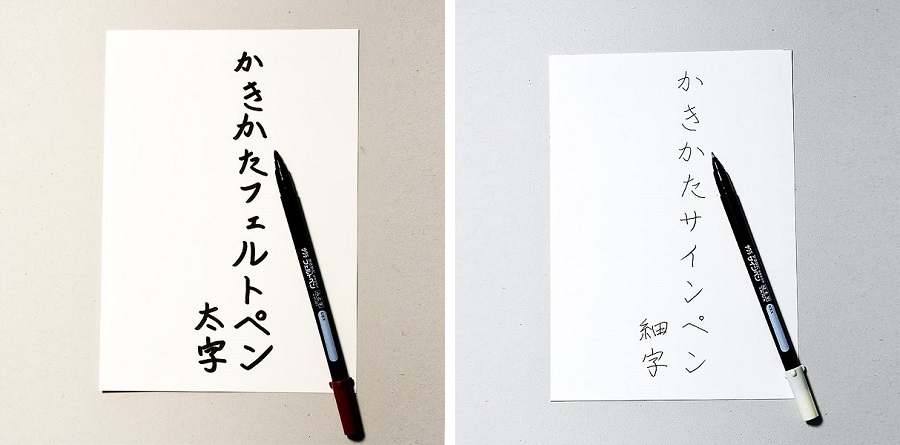 かきかたフェルトペン
太字
かきかたサインペン
細字